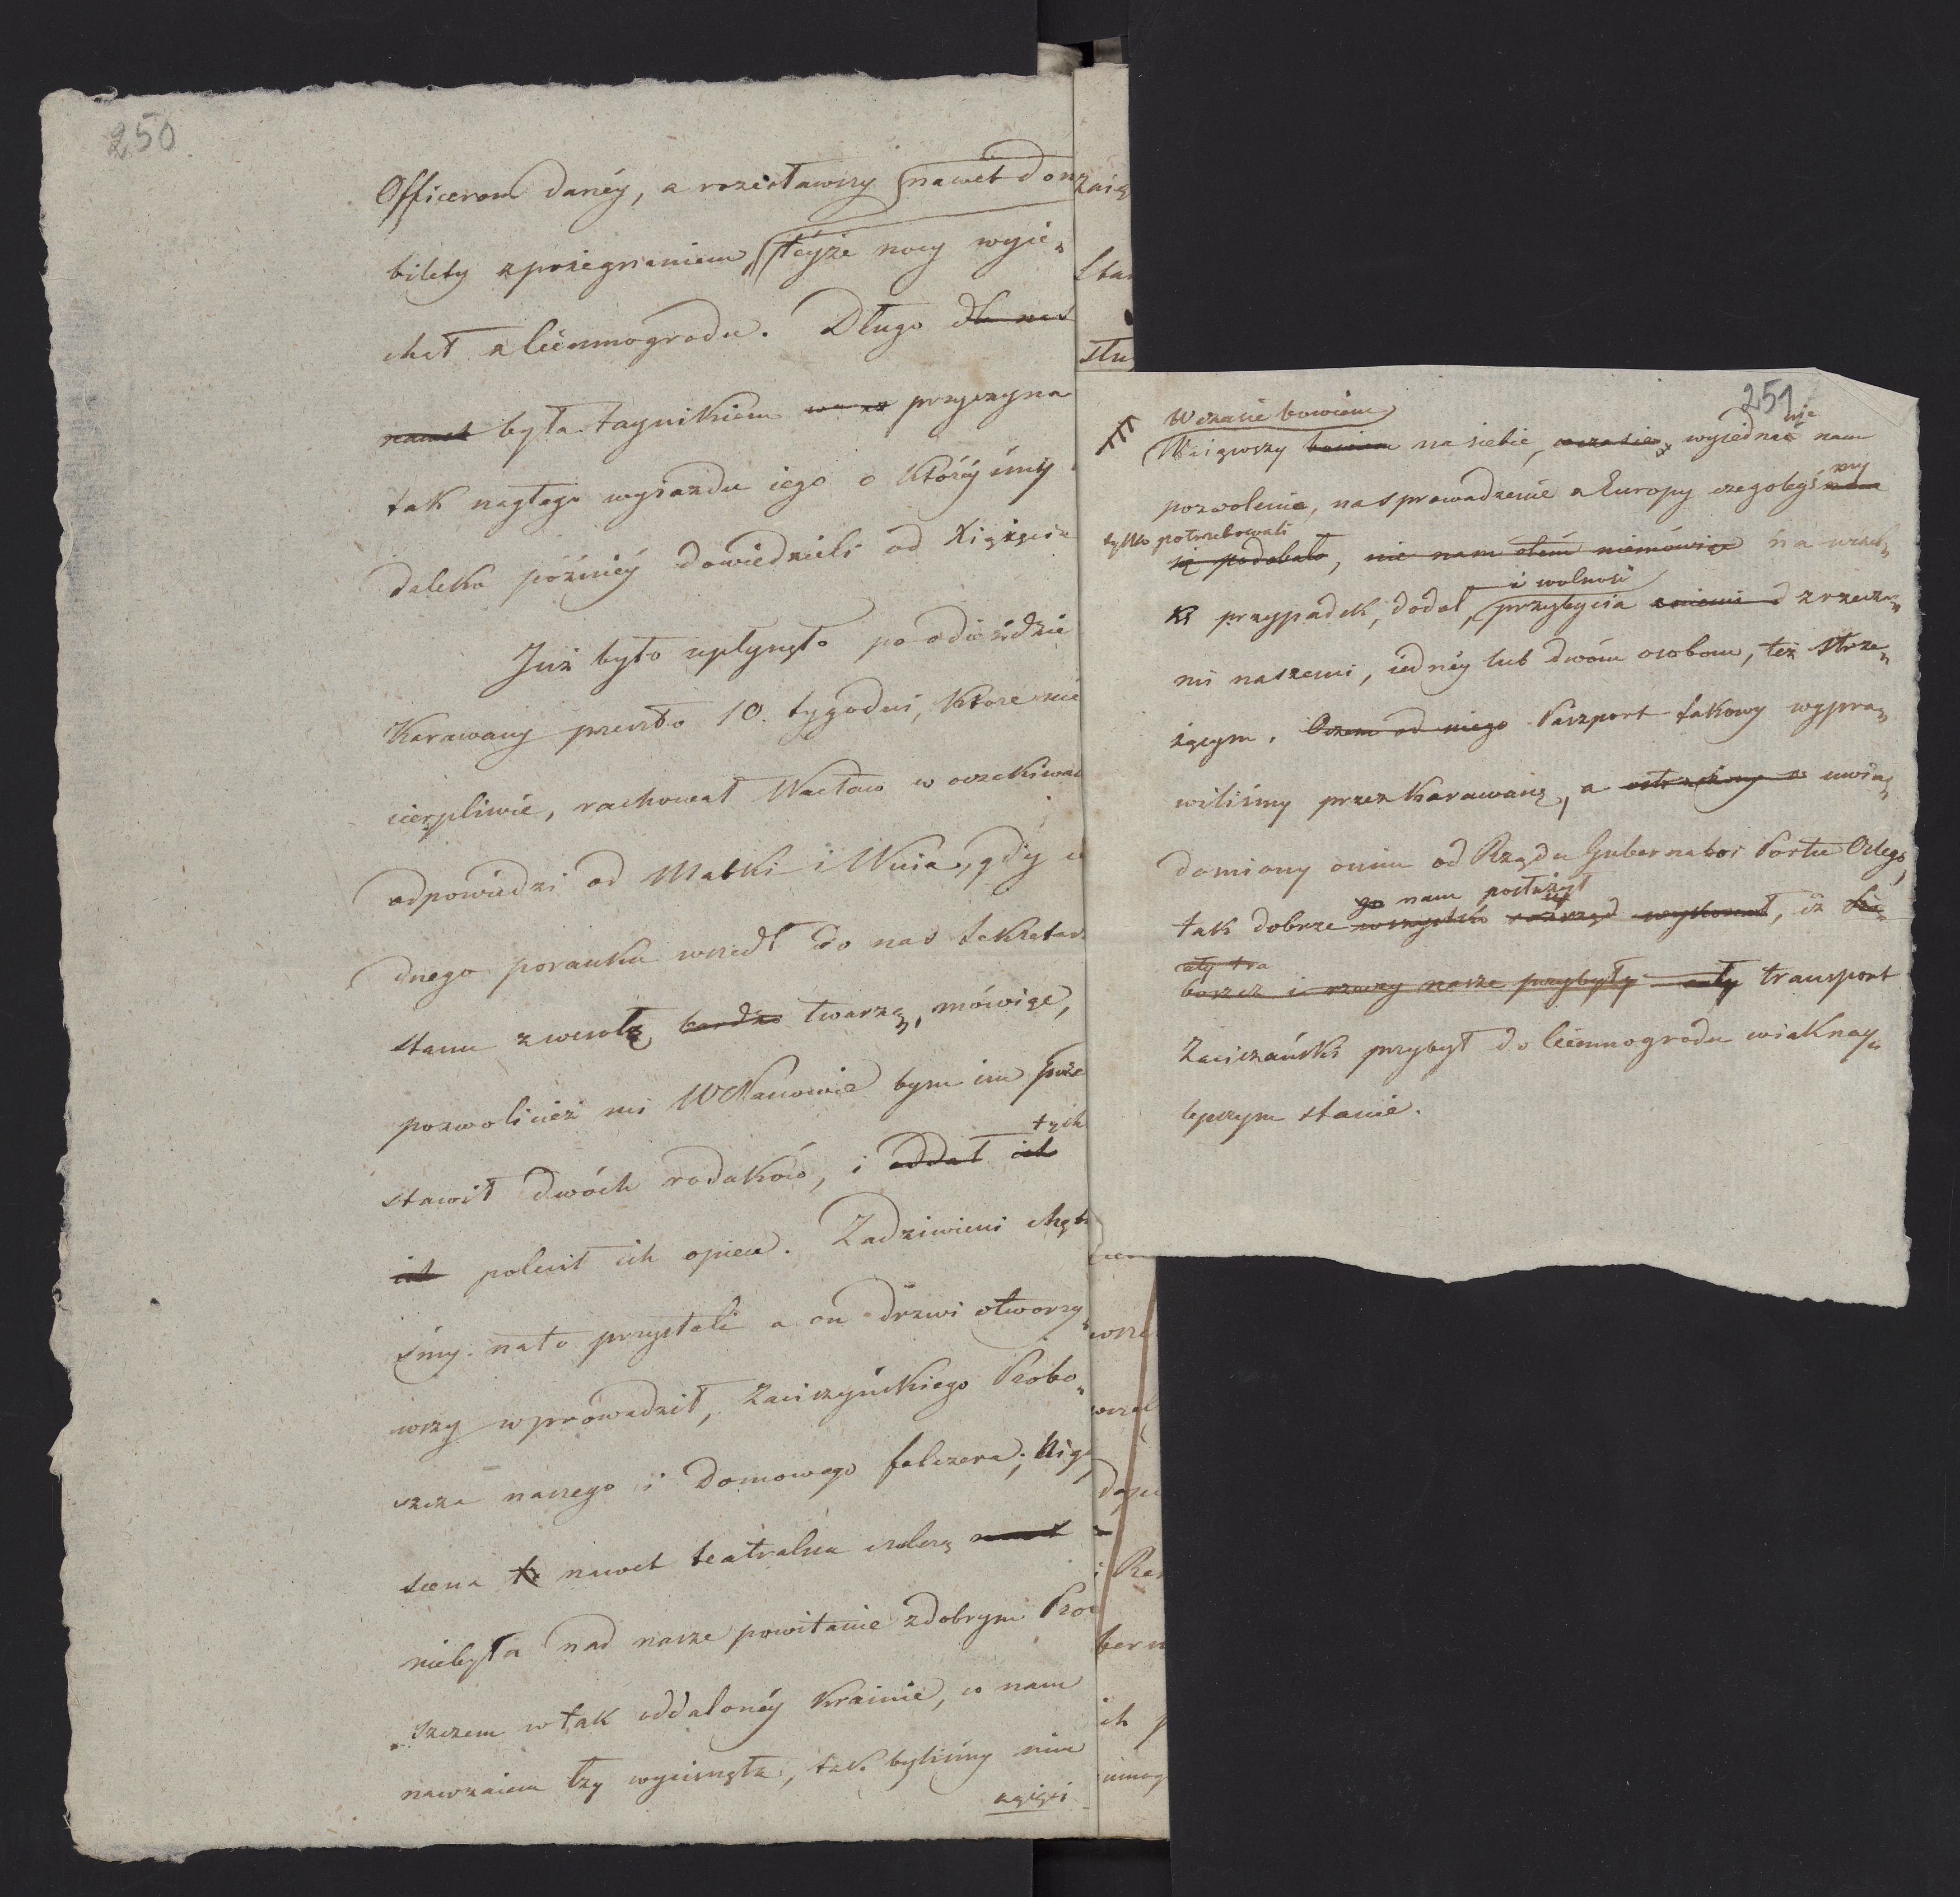 250
Officerom danéy, a rozesławszy nawet don
bilety z pożegnaniem, téyże nocy wyie„
chał z Ciemnogrodu. Długo dla nas
nawet była taynikiem przyczyna
tak nagłego wyiazdu iego o któréy śmy
daleko poźniéy dowiedzieli od Xiążęcia
Już było upłynęło po odieździe
Karawany przeszło 10. tygodni, które nie
cierpliwie, rachował Wacław w oczekiwa
odpowiedzi od Matki i Wuia, gdy
dnego poranku wszedł do nas Sekretarz
stanu z wesołą bardzo twarzą, mówiąc,
pozwolicież mi WPanowie bym im prze
tych
stawił dwóch rodaków, i oddał ich
ich polecił ich opiece. Zadziwieni chęt
śmy na to przystali a on drzwi otworzy„
wszy wprowadził, Zaciszyńskiego Probo„
szcza naszego i domowego felczera; Nig
scena te nawet teatralna czulszą
niebyła nad nasze powitanie z dobrym Pro
szczem w tak oddalonéy krainie, co nam
nawzaiem łzy wycisnęła, tak byliśmy nim
zaięci
251
W czasie bowiem
Wziąwszy bowiem na siebie, w czasie wyiednać nam
pozwolenie, na sprowadzenie z Europy czegobyś my
tylko potrzebowali
się podobało, nic nam o tém niemówiąc na wszel„
ki przypadek, dodał, przybycia z rzecza„
i wolność
mi naszemi, iednéy lub dwóm osobom, też strze„
żącym. Paszport takowy wypra„
wiliśmy przez Karawanę, a uwia„
domiony onim od Rządu Gubernator Portu Orlego,
go nam posłużył
tak dobrze wszystko wykonał, iż
cały tra
boszcz i rzeczy nasze przybyły cały transport
Zaciszański przybył do Ciemnogrodu w iak nay„
lepszym stanie.